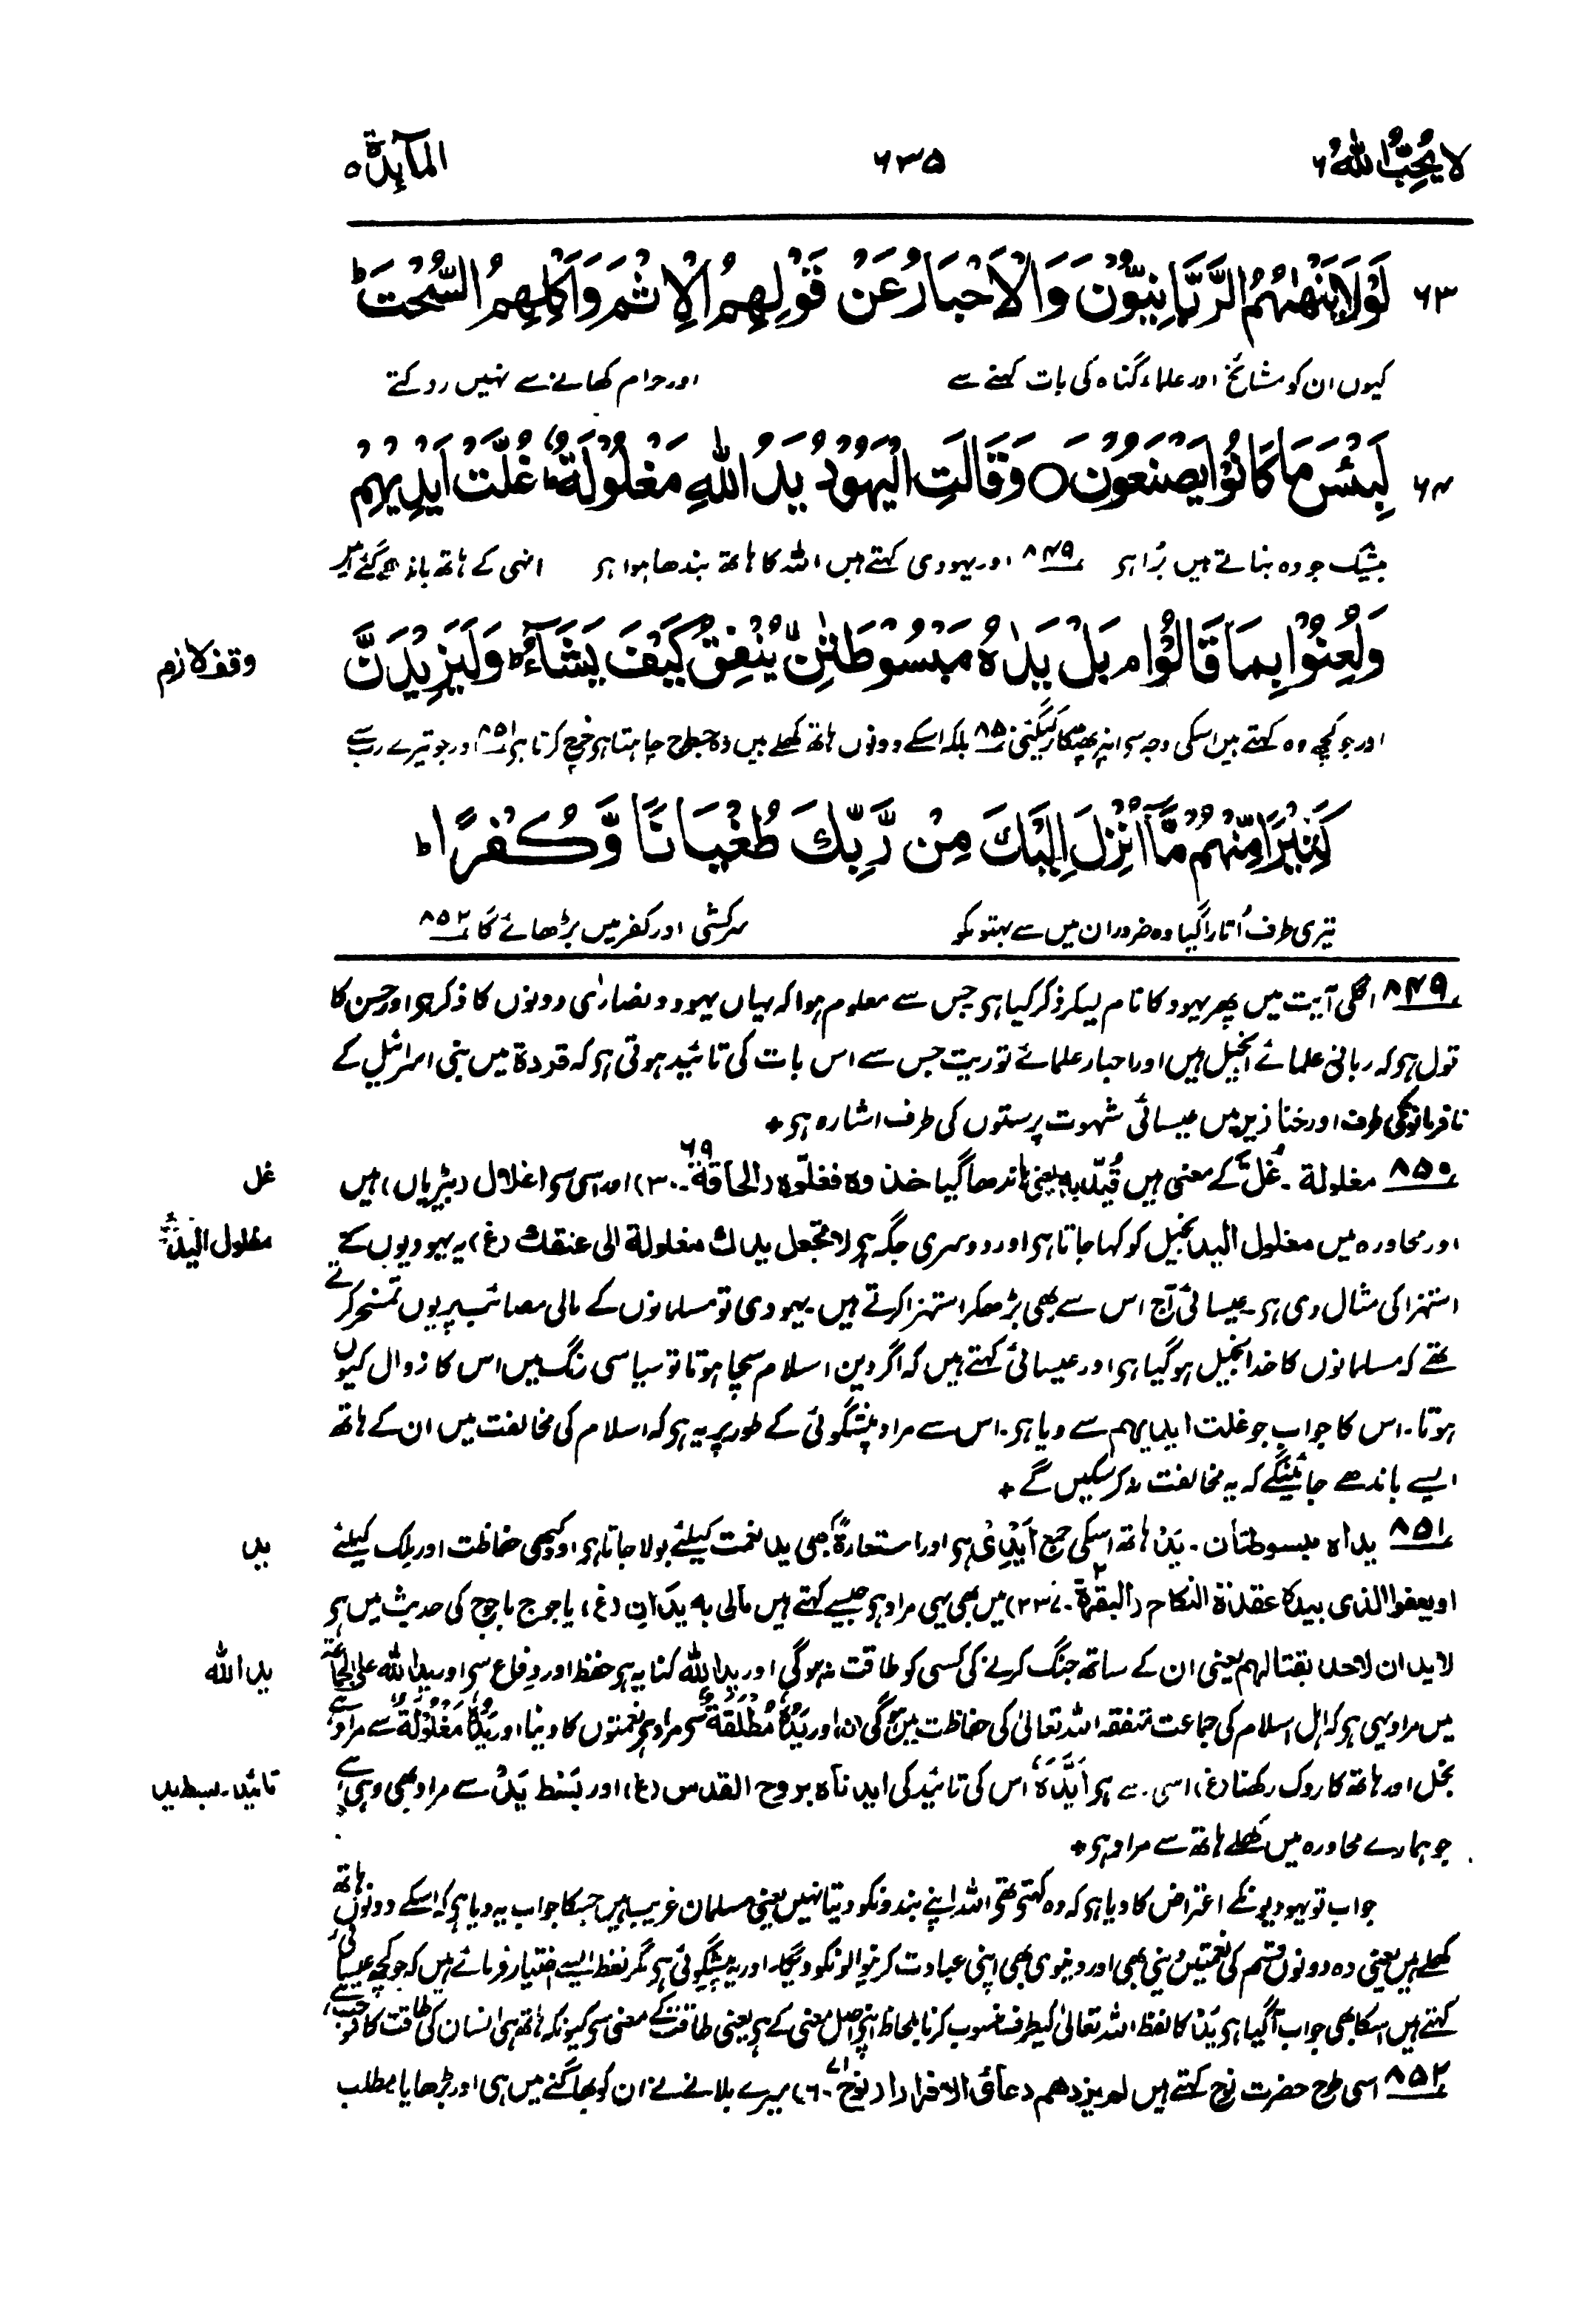 لا یحب اللہ ۶
۶۳۵
المآئدۃ ۵
۶۳ لَوْلَا یَنْھٰىھُمُ الرَّبّٰنِیُّوْنَ وَالْاَحْبَارُ عَنْ قَوْلِھِمُ الْاِثْمَ وَاَکْلِھِمُ السُّحْتَ ؕ
کیوں ان کو مشائخ اور علماء گناہ کی بات کہنے سے اور حرام کھانے سے نہیں روکتے
۶۴ لَبِئْسَ مَا کَانُوْا یَصْنَعُوْنَ ○ وَقَالَتِ الْیَھُوْدُ یَدُ اللّٰہِ مَغْلُوْلَةٌ ؕ غُلَّتْ اَیْدِیْھِمْ
بیشک جو وہ بناتے ہیں بُرا ہی ۸۴۹ اور یہودی کہتے ہیں اللہ کا ہاتھ بندھا ہوا ہی انہی کے ہاتھ باندھے گئے ہیں
وَلُعِنُوْا بِمَا قَالُوْا م بَلْ یَدٰہُ مَبْسُوْطَتٰنِ ۙ یُنْفِقُ کَیْفَ یَشَآءُ ؕ وَلَیَزِیْدَنَّ
وقف لازم
اور جو کچھ وہ کہتے ہیں اسکی وجہ سی انپر پھٹکار کیگئی ۸۵۰ بلکہ اسکے دونوں ہاتھ کھلے ہیں وہ جسطرح چاہتا ہی خرچ کرتا ہی ۸۵۱ اور جو تیرے رب سے
کَثِیْرًا مِّنْھُمْ مَّآ اُنْزِلَ اِلَیْکَ مِنْ رَّبِّکَ طُغْیَانًا وَّکُفْرًا ؕ
تیری طرف اُتارا گیا وہ ضرور ان میں سے بہتونکو سرکشی اور کفر میں بڑھائے گا ۸۵۲
۸۴۹ اگلی آیت میں پھر یہود کا نام لیکر ذکر کیا ہی جس سے معلوم ہوا کہ یہاں یہود و نصاریٰ دونوں کا ذکر ہی اور حسن کا
قول ہی کہ ربانی علمائے انجیل ہیں اور احبار علمائے توریت جس سے اس بات کی تائید ہوتی ہی کہ قردة میں بنی اسرائیل کے
نافرمانونکی طرف اور خنازیر میں عیسائی شہوت پرستوں کی طرف اشارہ ہی +
۸۵۰ مغلولة ۔ غُلَّ کے معنی ہیں قُیِّدَ بہ یعنی باندھا گیا خذوہ فغلّوہ (الحاقة ۶۹ ۔ ۳۰) اور اسی سی اغلال (بیڑیاں) ہیں
غل
اور محاورہ میں مغلول الید بخیل کو کہا جاتا ہی اور دوسری جگہ ہی لا تجعل یدک مغلولة الی عنقک (غ) یہ یہودیوں کے
مغلول الید
استہزا کی مثال دی ہی ۔ عیسائی آج اس سے بھی بڑھکر استہزا کرتے ہیں ۔ یہودی تو مسلمانوں کے مالی مصائب پر یوں تمسخر کرتے
تھے کہ مسلمانوں کا خدا بخیل ہو گیا ہی اور عیسائی کہتے ہیں کہ اگر دین اسلام سچا ہوتا تو سیاسی رنگ میں اس کا زوال کیوں
ہوتا ۔ اس کا جواب جو غلت ایدیھم سے دیا ہی ۔ اس سے مراد پیشگوئی کے طور پر یہ ہی کہ اسلام کی مخالفت میں ان کے ہاتھ
ایسے باندھے جائینگے کہ یہ مخالفت نہ کر سکیں گے +
۸۵۱ یداہ مبسوطتان ۔ یَدٌ ہاتھ اسکی جمع اَیْدِیْ ہی اور استعارةً کبھی ید نعمت کیلئے بولا جاتا ہی اور کبھی حفاظت اور ملک کیلئے
ید
او یعفوا الذی بیدہ عقدة النکاح (البقرة ۲ ۔ ۲۳۷) میں بھی یہی مراد ہی جیسے کہتے ہیں مالی بہ یدانِ (غ) یاجوج ماجوج کی حدیث میں ہی
لا یدان لاحد بقتالھم یعنی ان کے ساتھ جنگ کرنے کی کسی کو طاقت نہ ہوگی اور ید اللہ کنایہ ہی حفظ اور دفاع سی اور ید اللہ علی الجماعة
ید اللہ
میں مراد یہی ہی کہ اہل اسلام کی جماعت متفقہ اللہ تعالیٰ کی حفاظت میں ہوگی (ن) اور یَدُہٗ مُطْلَقَةٌ سی مراد ہی نعمتوں کا دینا اور یَدُہٗ مَغْلُوْلَةٌ سے مراد ہے
بخل اور ہاتھ کا روک رکھنا (غ) اسی سے ہی اَیَّدَہٗ اس کی تائید کی ایدناہ بروح القدس (غ) اور بَسْط یَدْ سے مراد بھی وہی ہے
تائید ۔ بسط ید
جو ہمارے محاورہ میں کھلے ہاتھ سے مراد ہی +
جواب تو یہودیونکے اعتراض کا دیا ہی کہ وہ کہتی تھی اللہ اپنے بندونکو دیتا نہیں یعنی مسلمان غریب ہیں جسکا جواب یہ دیا ہی کہ اسکے دونوں ہاتھ
کھلے ہیں یعنی وہ دونوں قسم کی نعمتیں دینی بھی اور دنیوی بھی اپنی عبادت کرنیوالونکو دیگا ۔ اور یہ پیشگوئی ہی مگر لفظ ایسے اختیار فرمائے ہیں کہ جو کچھ عیسائی
کہتے ہیں اسکا بھی جواب آگیا ہی یَدٌ کا لفظ اللہ تعالیٰ کیطرف منسوب کرنا بلحاظ اپنی اصل معنی کے ہی یعنی طاقت کے معنی سی کیونکہ ہاتھ ہی انسان کی طاقت کا
۸۵۲ اسی طرح حضرت نوح کہتے ہیں لم یزدھم دعآئ الا فرارا (نوح ۷۱ ۔ ۶) میرے بلانے نے ان کو بھاگنے میں ہی اور بڑھایا مطلب